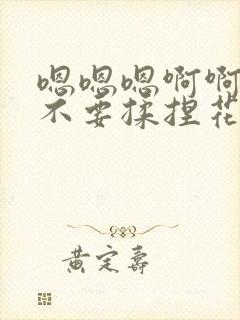 嗯嗯嗯啊啊
不要揉捏花
黄定寿